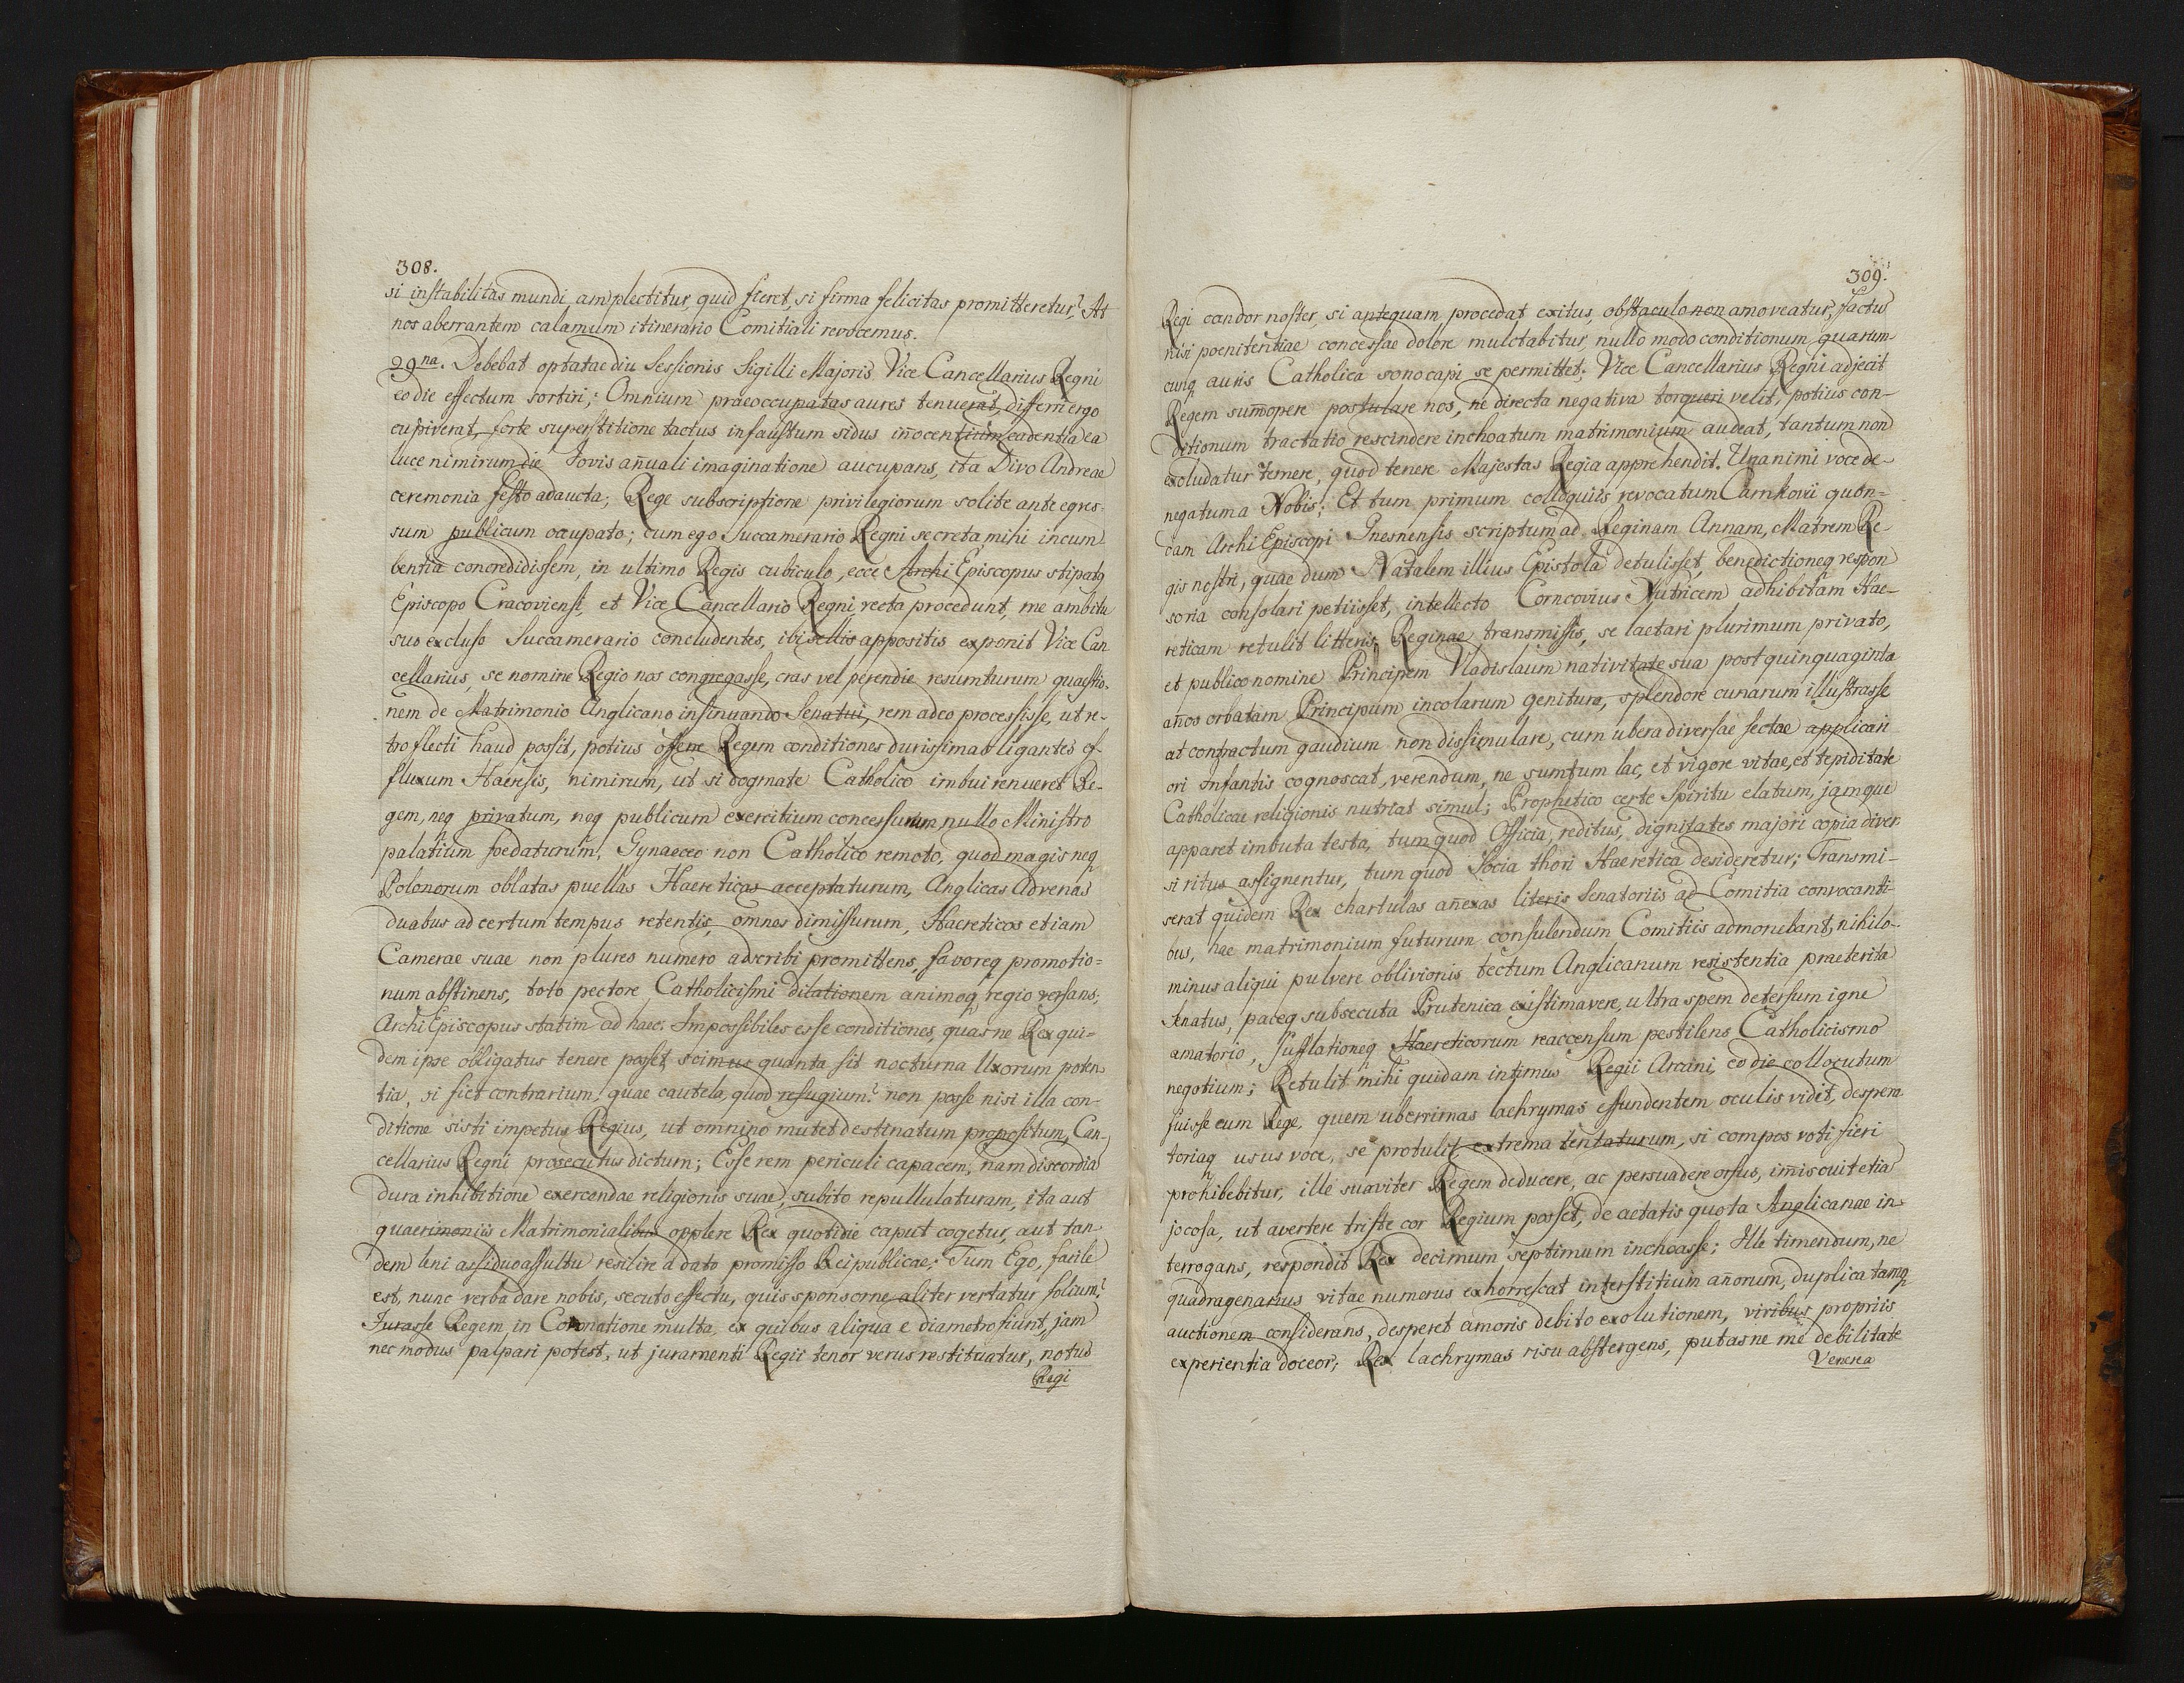 308.
si instabilitas mundi amplectitur, quid fieret, si firma felicitas promitteretur? At
nos aberrantem calamum itinerario Comitiali revocemus.
29na. Debebat optatae diu Sessionis Sigilli Majoris Vice Cancellarius Regni
eo die effectum sortiri; Omnium praeoccupatas aures tenuerat, differri ergo
cupiverat, forte superstitione tactus infaustum sidus iñocentium cadentia ea
luce nimirum die Jovis añuali imaginatione aucupans, ita Divo Andreae
ceremonia festo adaucta; Rege subscriptione privilegiorum solite ante egres-
sum publicum occupato; cum ego Succamerario Regni secreta mihi incum
bentia concredidissem, in ultimo Regis cubiculo, ecce Archi Episcopus stipatq
Episcopo Cracoviensi, et Vice Cancellario Regni recta procedunt, me ambitu
suo excluso Succamerario concludentes, ibi sellis appositis exponit Vice Can
cellarius, se nomine Regio nos congregasse, cras vel perendie resumturum quaestio-
nem de Matrimonio Anglicano insinuando Senatui, rem adeo processisse, ut re-
tro flecti haud possit, potius offerre Regem conditiones durissimas ligantes ef-
fluxum Haeresis, nimirum, ut si dogmate Catholico imbui renueret Re-
gem, neq privatum, neq publicum exercitium concessurum nullo Ministro
palatium foedaturum, Gynaeceo non Catholico remoto, quod magis neq
Polonorum oblatas puellas Haereticas acceptaturum, Anglicas Advenas
duabus ad certum tempus retentis, omnes dimissurum, Haereticos etiam
Camerae suae non plures numero adscribi promittens, favoreq promotio=
num abstinens, toto pectore Catholicismi dilationem animoq regio versans;
Archi Episcopus statim ad haec: Impossibiles esse conditiones, quas ne Rex qui=
dem ipse obligatus tenere posset, scimus quanta sit nocturna Uxorum poten
tia, si fiet contrarium, quae cautela, quod refugium? non posse nisi illa con-
ditione sisti impetus Regius, ut omnino mutet destinatum propositum, Can-
cellarius Regni prosecutus dictum; Esse rem periculi capacem, nam discordia
dura inhibitione exercendae religionis suae, subito repullulaturam, ita aut
quaerimoniis Matrimonialibus opplere Rex quotidie caput cogetur, aut tan-
dem leni assiduo assultu resilire a dato promisso Reipublicae; Tum Ego, facile
est, nunc verba dare nobis, secuto effectu, quis sponsor ne aliter vertatur folium?
Jurasse Regem in Coronatione multa, ex quibus aliqua e diametro fiunt, jam
nec modus palpari potest, ut juramenti Regii tenor verus restituatur, notus
Regi
309.
Regi candor noster, si antequam procedat exitus, obstaculo non amoveatur, factus
nisi poenitentiae concessae dolore mulctabitur, nullo modo conditionum quarum-
cunq auris Catholica sono capi se permittet; Vice Cancellarius Regni adjecit
Regem sum̃opere postulare nos, ne directa negativa torqueri velit, potius con-
ditionum tractatio rescindere inchoatum matrimonium audeat, tantum non
excludatur temere, quod tenere Majestas Regia apprehendit. Unanimi voce de-
negatum a Nobis; Et tum primum colloquiis revocatum Carnkovii quon=
dam Archi Episcopi Gnesnensis scriptum ad Reginam Annam, Matrem Re
gis nostri, quae dum Natalem illius Epistola detulisset, benedictioneq respon
soria consolari petiisset, intellecto Corncovius Nutricem adhibitam Hae-
reticam retulit litteris Reginae transmissis, se laetari plurimum privato,
et publico nomine Principem Vladislaum nativitate sua post quinquaginta
años orbatam Principum incolarum genitura, splendore cunarum illustrasse
at contractum gaudium non dissimulare, cum ubera diversae sectae applicari
ori Infantis cognoscat, verendum, ne sumtum lac, et vigore vitae, et tepiditate
Catholicae religionis nutriat simul; Prophetico certe Spiritu elatum, jam que
apparet imbuta testa, tum quod Officia, reditus, dignitates majori copia diver
si ritus assignentur, tum quod Socia thori Haeretica desideretur; Transmi-
serat quidem Rex chartulas añexas literis Senatoriis ad Comitia convocanti-
bus, hae matrimonium futurum consulendum Comitiis admonebant, nihilo-
minus aliqui pulvere oblivionis tectum Anglicanum resistentia praeterita
Senatus, paceq subsecuta Prutenica existimavere, ultra spem detersum igne
amatorio, Sufflationeq Haereticorum reaccensum pestilens Catholicismo
negotium; Retulit mihi quidam intimus Regii Arcani, eo die collocutum
fuisse cum Rege, quem uberrimas lachrymas effundentem oculis vidit, despera
toriaq usus voce, se protulit extrema tentaturum, si compos voti fieri
prohibebitur, ille suaviter Regem deducere, ac persuadere orsus, im̃iscuit etia
jocosa, ut avertere triste cor Regium posset, de aetatis quota Anglicanae in
terrogans, respondit Rex decimum septimum inchoasse; Ille timendum, ne
quadragenarius vitae numerus exhorrescat interstitium añorum, duplicatamq
auctionem considerans, desperet amoris debito exolutionem, viribus propriis
experientia doceor; Rex lachrymas risu abstergens, putasne me debilitate
Venerea